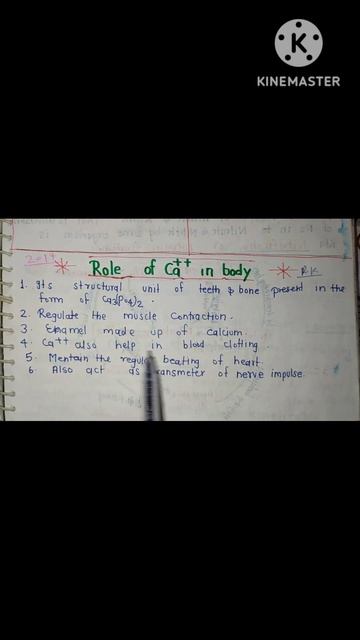 KINEMASTER
Role of Ca++ in body
R.K
1. Its structural unit of teeth & bone present in the
form of Ca3(PO4)2.
2. Regulate the muscle Contraction.
3. Enamel made up of calcium.
4. Ca++ also help in blood clotting.
5. Mentain the regular beating of heart.
6. Also act as transmeter of nerve impulse.